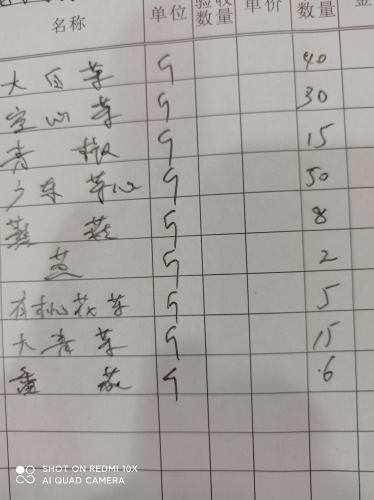 名称 单位 验收数量 单价 数量 金
大白菜 斤 40
空心菜 斤 30
青椒 斤 15
广东菜心 斤 50
斤 8
斤 2
有机花菜 斤 5
大青菜 斤 15
斤 6
SHOT ON REDMI 10X
AI QUAD CAMERA